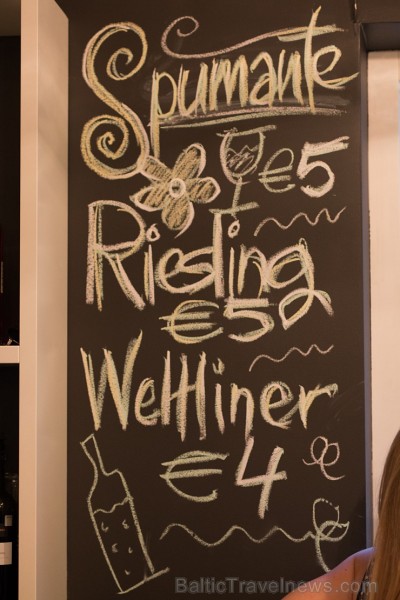 Spumante
€5
Riesling
€5
Weltliner
€4
BalticTravelnews.com